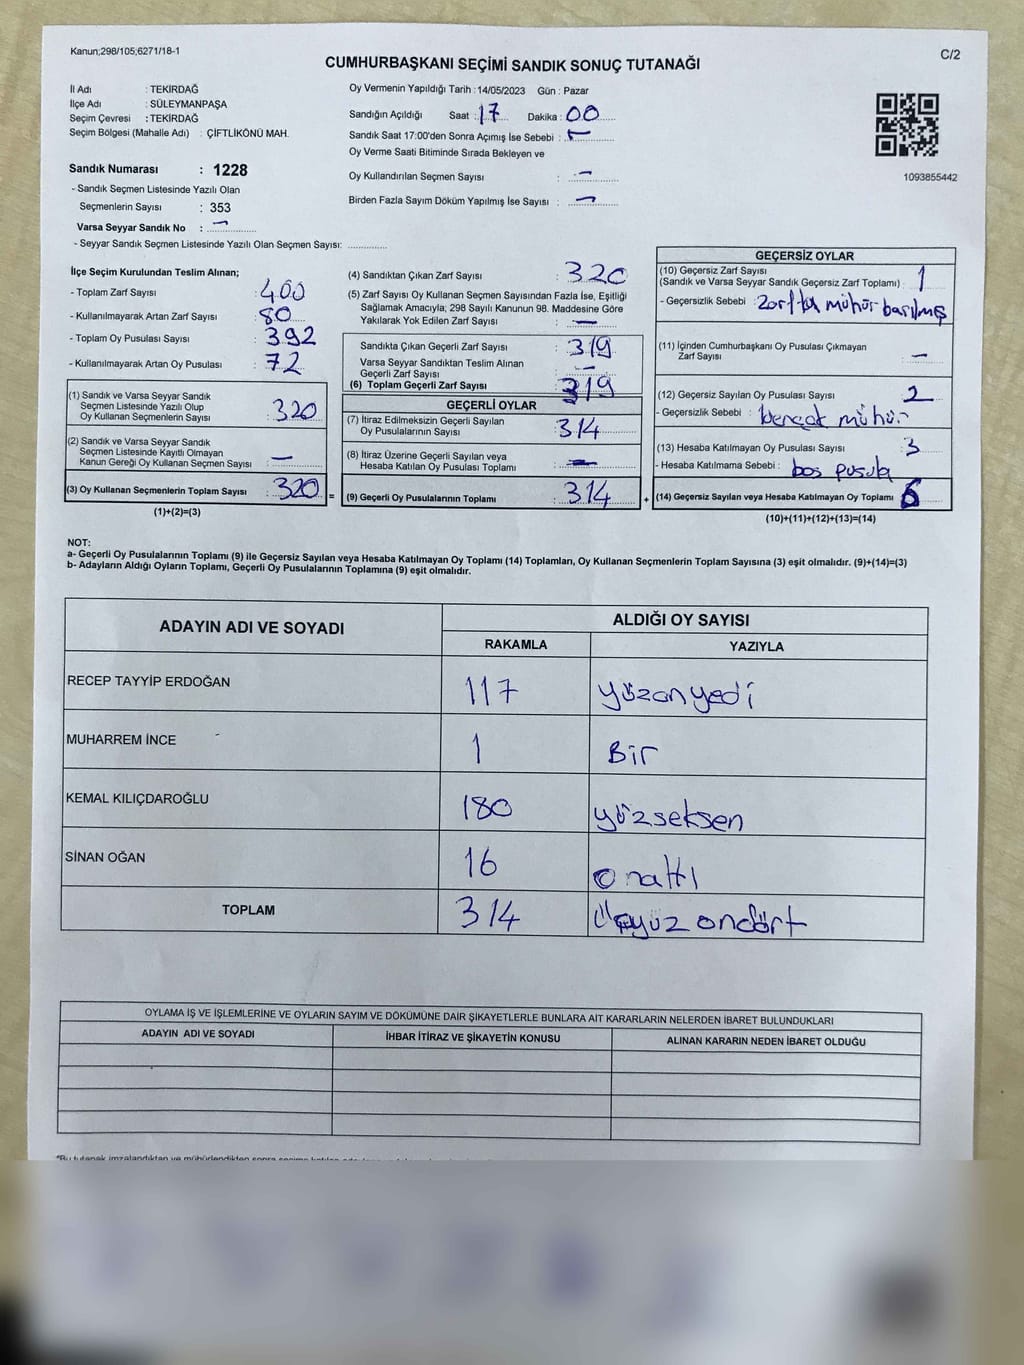 Kanun;298/105;6271/18-1
C/2
CUMHURBAŞKANI SEÇİMİ SANDIK SONUÇ TUTANAĞI
İl Adı : TEKİRDAĞ
İlçe Adı : SÜLEYMANPAŞA
Seçim Çevresi : TEKİRDAĞ
Seçim Bölgesi (Mahalle Adı) : ÇİFTLİKÖNÜ MAH.
Sandık Numarası : 1228
- Sandık Seçmen Listesinde Yazılı Olan
Seçmenlerin Sayısı : 353
Varsa Seyyar Sandık No : -
- Seyyar Sandık Seçmen Listesinde Yazılı Olan Seçmen Sayısı: ..............
Oy Vermenin Yapıldığı Tarih : 14/05/2023 Gün : Pazar
Sandığın Açıldığı Saat : 17 Dakika : 00
Sandık Saat 17:00'den Sonra Açımış İse Sebebi : -
Oy Verme Saati Bitiminde Sırada Bekleyen ve
Oy Kullandırılan Seçmen Sayısı : -
Birden Fazla Sayım Döküm Yapılmış İse Sayısı : -
1093855442
İlçe Seçim Kurulundan Teslim Alınan;
- Toplam Zarf Sayısı : 400
- Kullanılmayarak Artan Zarf Sayısı : 80
- Toplam Oy Pusulası Sayısı : 392
- Kullanılmayarak Artan Oy Pusulası : 72
(1) Sandık ve Varsa Seyyar Sandık
Seçmen Listesinde Yazılı Olup
Oy Kullanan Seçmenlerin Sayısı : 320
(2) Sandık ve Varsa Seyyar Sandık
Seçmen Listesinde Kayıtlı Olmayan
Kanun Gereği Oy Kullanan Seçmen Sayısı : -
(3) Oy Kullanan Seçmenlerin Toplam Sayısı : 320 =
(1)+(2)=(3)
(4) Sandıktan Çıkan Zarf Sayısı : 320
(5) Zarf Sayısı Oy Kullanan Seçmen Sayısından Fazla İse, Eşitliği
Sağlamak Amacıyla; 298 Sayılı Kanunun 98. Maddesine Göre
Yakılarak Yok Edilen Zarf Sayısı : -
Sandıkta Çıkan Geçerli Zarf Sayısı : 319
Varsa Seyyar Sandıktan Teslim Alınan
Geçerli Zarf Sayısı : -
(6) Toplam Geçerli Zarf Sayısı 319
GEÇERLİ OYLAR
(7) İtiraz Edilmeksizin Geçerli Sayılan
Oy Pusulalarının Sayısı : 314
(8) İtiraz Üzerine Geçerli Sayılan veya
Hesaba Katılan Oy Pusulası Toplamı : -
(9) Geçerli Oy Pusulalarının Toplamı : 314 +
GEÇERSİZ OYLAR
(10) Geçersiz Zarf Sayısı
(Sandık ve Varsa Seyyar Sandık Geçersiz Zarf Toplamı) : 1
- Geçersizlik Sebebi : Zarfta mühür barılmış
(11) İçinden Cumhurbaşkanı Oy Pusulası Çıkmayan
Zarf Sayısı : -
(12) Geçersiz Sayılan Oy Pusulası Sayısı : 2
- Geçersizlik Sebebi : mühür
(13) Hesaba Katılmayan Oy Pusulası Sayısı : 3
- Hesaba Katılmama Sebebi : boş pusula
(14) Geçersiz Sayılan veya Hesaba Katılmayan Oy Toplamı : 6
(10)+(11)+(12)+(13)=(14)
NOT:
a- Geçerli Oy Pusulalarının Toplamı (9) ile Geçersiz Sayılan veya Hesaba Katılmayan Oy Toplamı (14) Toplamları, Oy Kullanan Seçmenlerin Toplam Sayısına (3) eşit olmalıdır. (9)+(14)=(3)
b- Adayların Aldığı Oyların Toplamı, Geçerli Oy Pusulalarının Toplamına (9) eşit olmalıdır.
ADAYIN ADI VE SOYADI
ALDIĞI OY SAYISI
RAKAMLA YAZIYLA
RECEP TAYYİP ERDOĞAN 117 yüzonyedi
MUHARREM İNCE 1 Bir
KEMAL KILIÇDAROĞLU 180 yüzseksen
SİNAN OĞAN 16 onaltı
TOPLAM 314 Üçyüz ondört
OYLAMA İŞ VE İŞLEMLERİNE VE OYLARIN SAYIM VE DÖKÜMÜNE DAİR ŞİKAYETLERLE BUNLARA AİT KARARLARIN NELERDEN İBARET BULUNDUKLARI
ADAYIN ADI VE SOYADI İHBAR İTİRAZ VE ŞİKAYETİN KONUSU ALINAN KARARIN NEDEN İBARET OLDUĞU